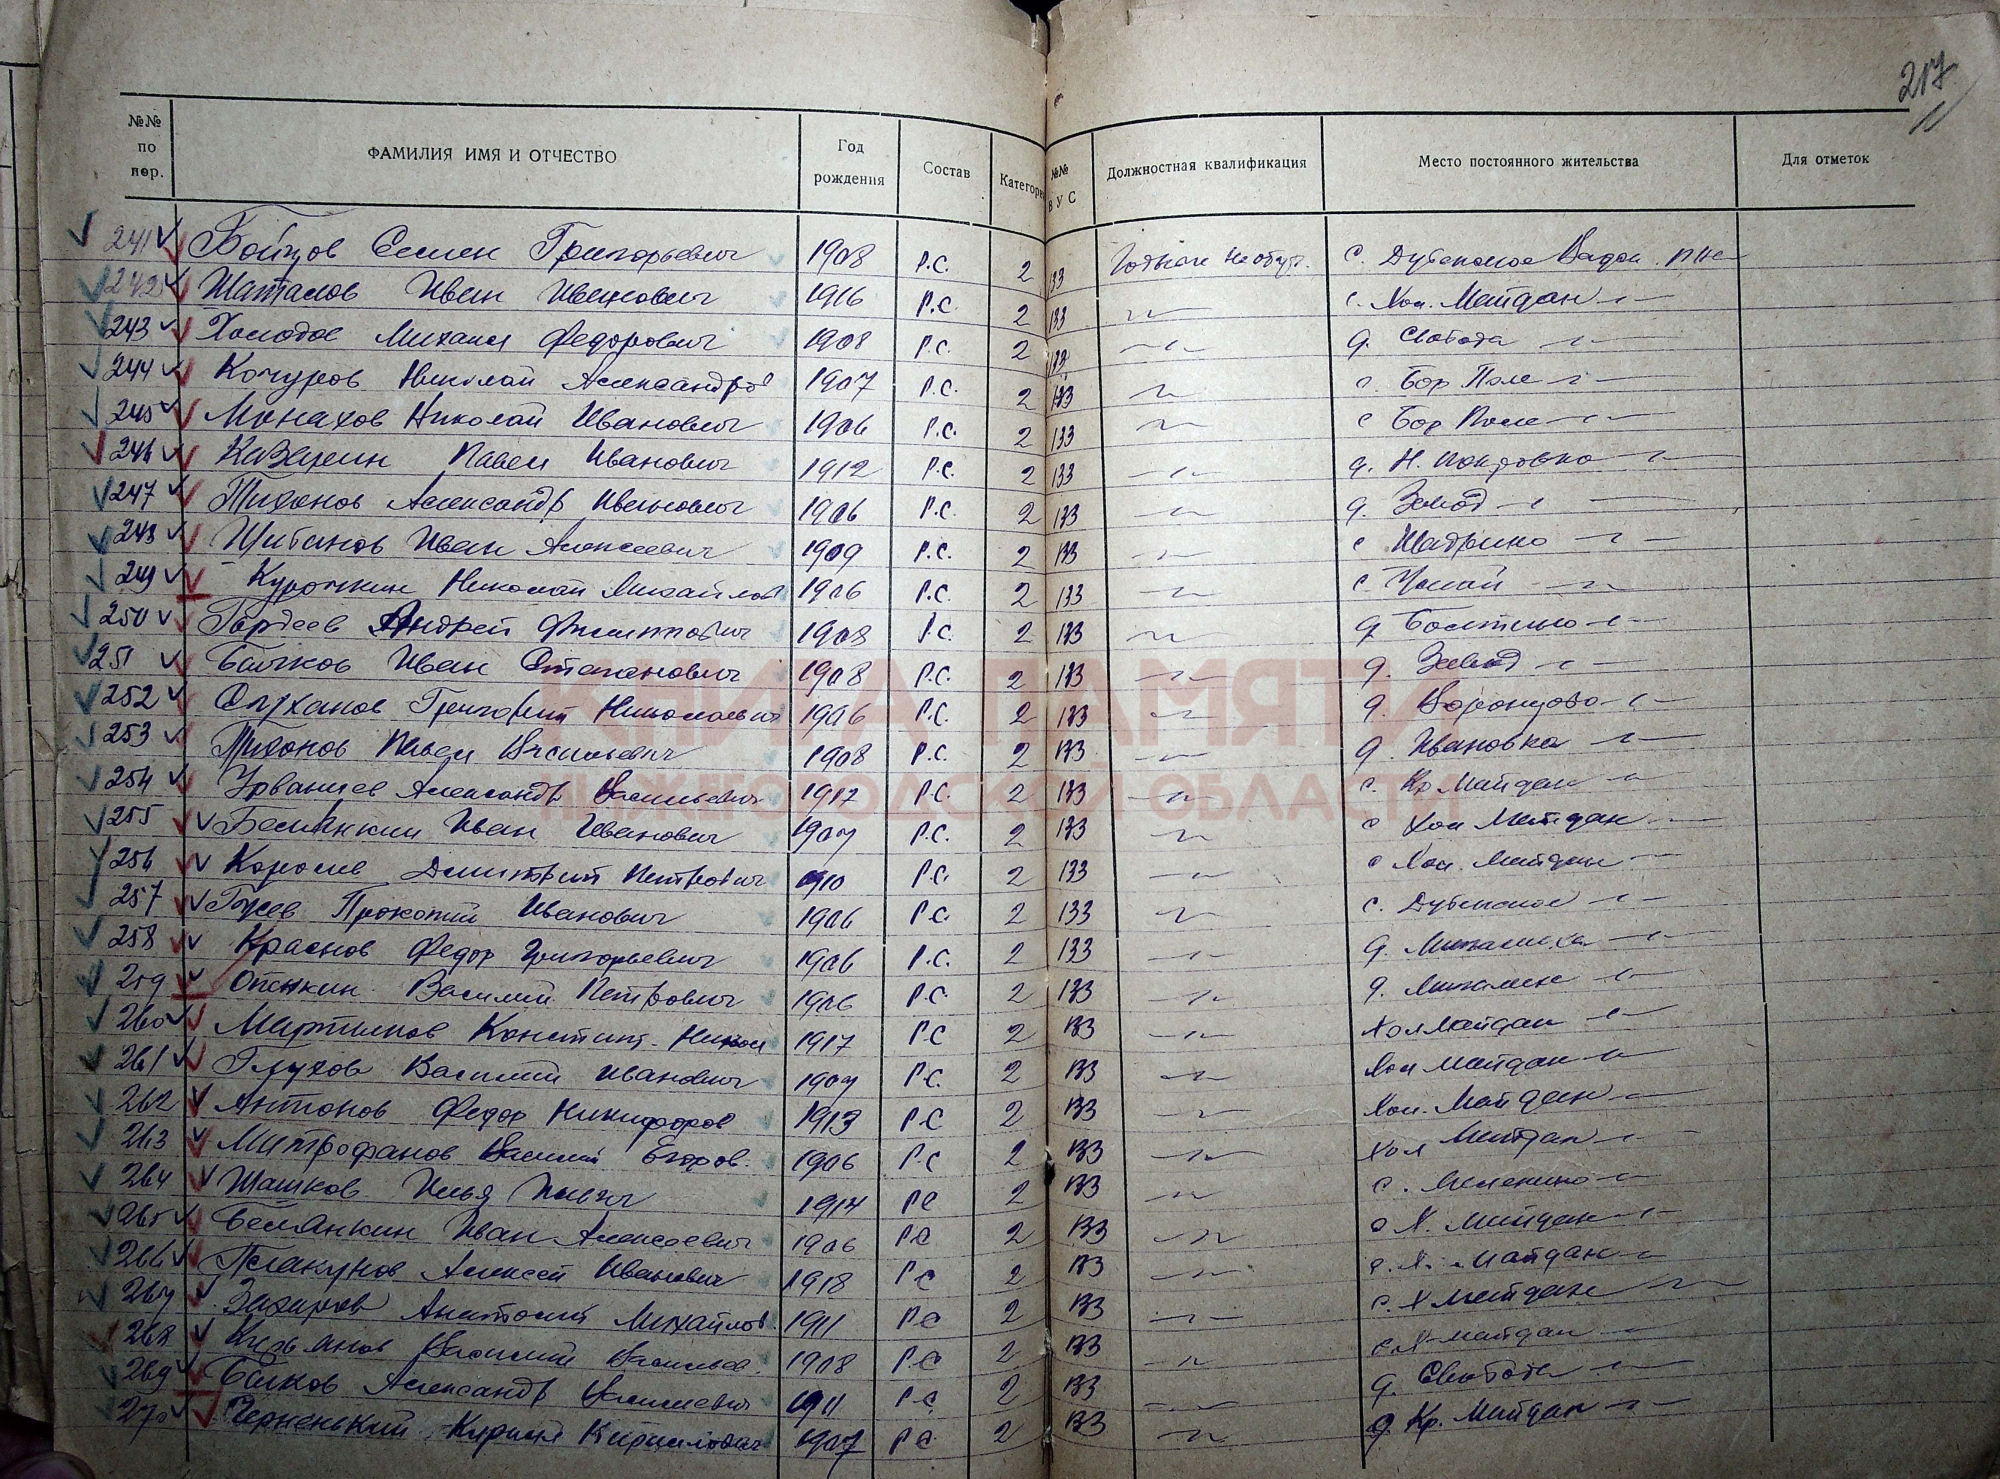 217
№№ по пор. ФАМИЛИЯ ИМЯ И ОТЧЕСТВО Год рождения Состав Категор №№ ВУС Должностная квалификация Место постоянного жительства Для отметок
241 Бойцов Семен Григорьевич 1908 Р.С. 2 133 Годные необуч. с. Дубенское Вадск. р-на
242 Шаталов Иван Иванович 1916 Р.С. 2 133 с. Хол. Майдан
243 Холодов Михаил Федорович 1908 Р.С. 2 133 д. Свобода
244 Кочуров Николай Александров 1907 Р.С. 2 133 с. Бор Поле
245 Монахов Николай Иванович 1906 Р.С. 2 133 с Бор Поле
246 Каверин Павел Иванович 1912 Р.С. 2 133 д. Н. Покровка
247 Тихонов Александр Иванович 1906 Р.С. 2 133 д. Завод
248 Иван Алексеевич 1909 Р.С. 2 133 с
249 Курочкин Николай Михайлов 1906 Р.С. 2 133 с
250 Гордеев Андрей Филиппович 1908 Р.С. 2 133 д
251 Бычков Иван Степанович 1908 Р.С. 2 133 д. Завод
252 Григорий Николаевич 1906 Р.С. 2 133 д. Воронцово
253 Тихонов Павел Васильевич 1908 Р.С. 2 133 д. Ивановка
254 Урванцев Александр Васильевич 1917 Р.С. 2 133 с. Кр Майдан
255 Белянкин Иван Иванович 1907 Р.С. 2 133 с Хол Майдан
256 Королев Дмитрий Петрович 1910 Р.С. 2 133 с Хол. Майдан
257 Гусев Прокопий Иванович 1906 Р.С. 2 133 с. Дубенское
258 Краснов Федор Григорьевич 1906 Р.С. 2 133 д.
259 Опенкин Василий Петрович 1906 Р.С. 2 133 д.
260 Мартынов Констант. Никол 1917 Р.С 2 133 Хол Майдан
261 Глухов Василий Иванович 1907 Р.С. 2 133 Хол Майдан
262 Антонов Федор Никифоров 1913 Р.С 2 133 Хол. Майдан
263 Митрофанов Василий Егоров. 1906 Р.С 2 133 Хол Майдан
264 Шашков Илья 1914 РС 2 133 с.
265 Белянкин Иван Алексеевич 1906 РС 2 133 с Х. Майдан
266 Плакунов Алексей Иванович 1918 РС 2 133 с. Х. Майдан
267 Захаров Анатолий Михайлов 1911 РС 2 133 с. Х Майдан
268 Василий Васильев. 1908 РС 2 133 с Х Майдан
269 Бычков Александр Васильевич 1911 РС 2 133 д. Свобода
270 Черненький Кирилл Кириллович 1907 РС 2 133 д. Кр. Майдан
КНИГА ПАМЯТИ
НИЖЕГОРОДСКОЙ ОБЛАСТИ